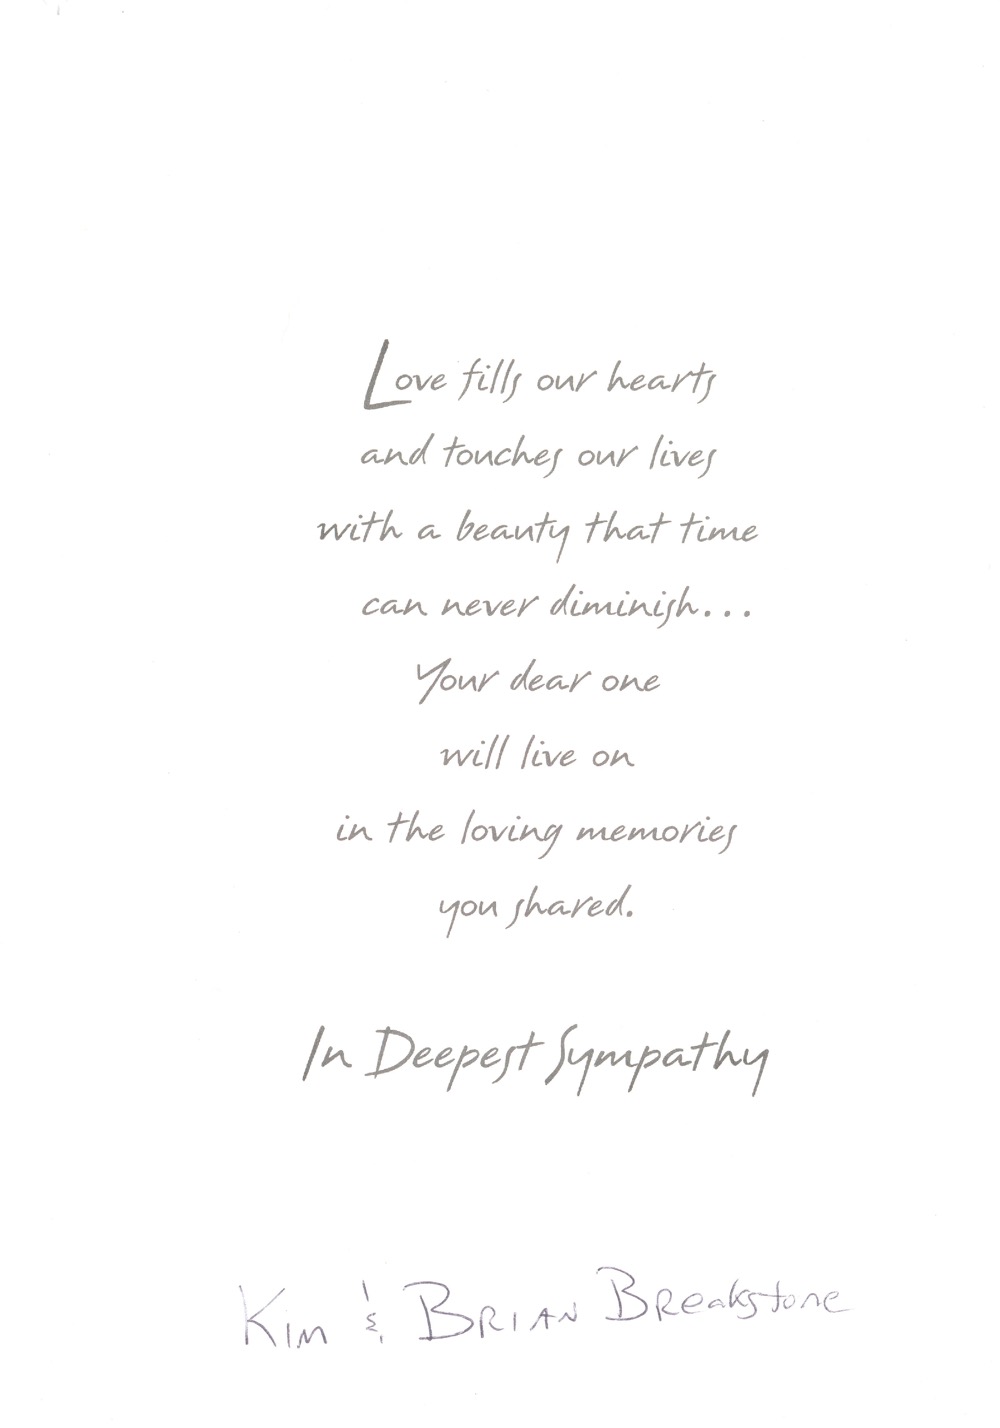 Love fills our hearts
and touches our lives
with a beauty that time
can never diminish...
Your dear one
will live on
in the loving memories
you shared.
In Deepest Sympathy
Kim & BRIAN BReakstone